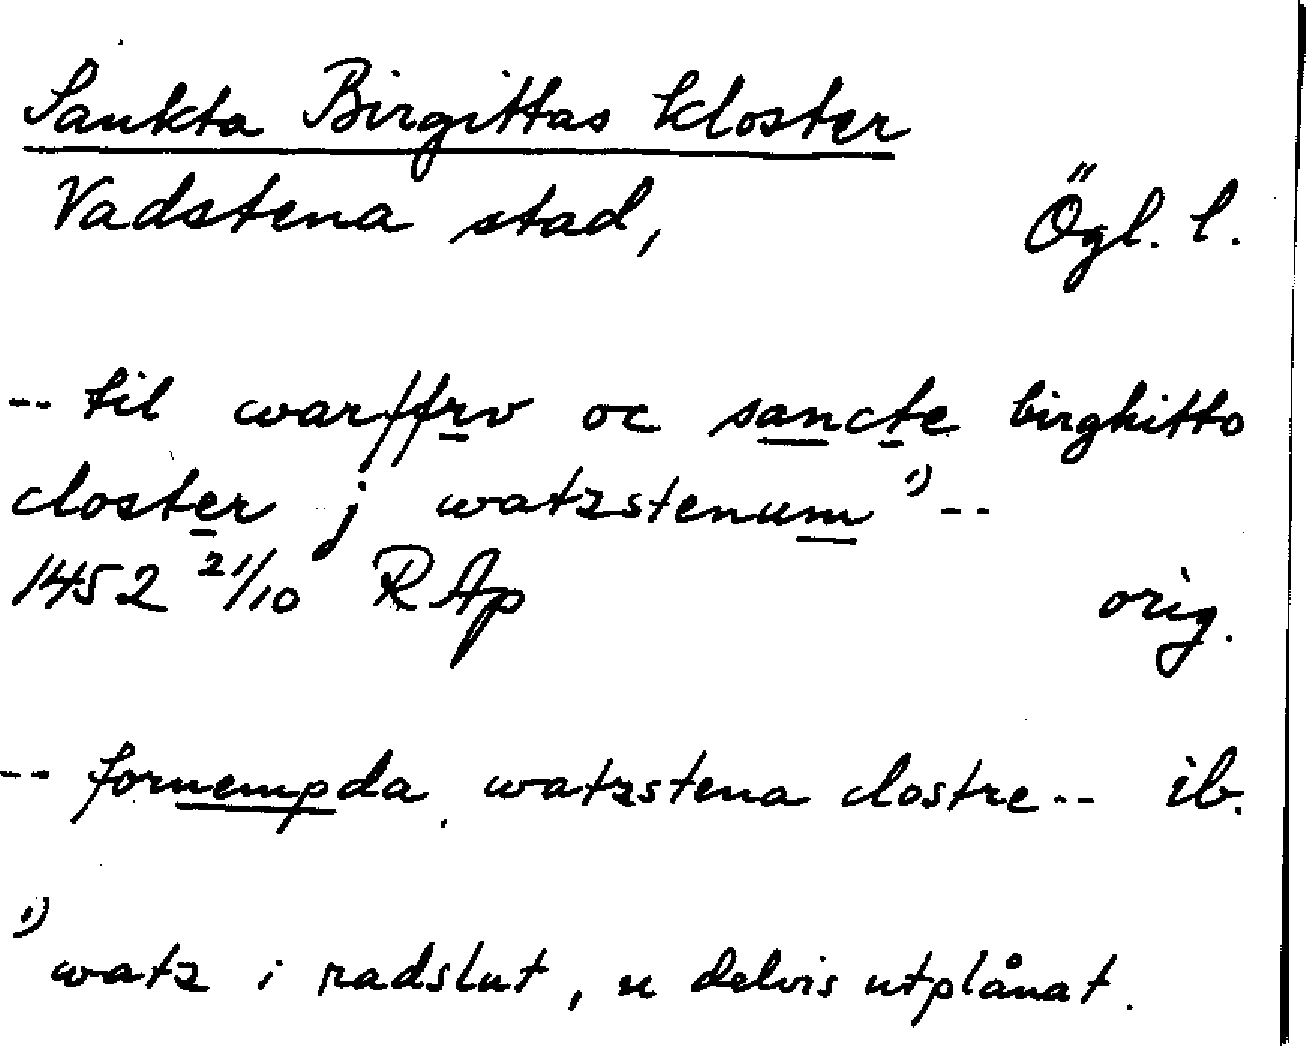 Sankta Birgittas kloster
Vadstena stad, Ögl. l.
-- til warffrv oc sancte birghitto
closter j watzstenum 1) --
1452 21/10 RAp orig.
-- fornempda watzstena clostre -- ib.
1) watz i radslut, u delvis utplånat.